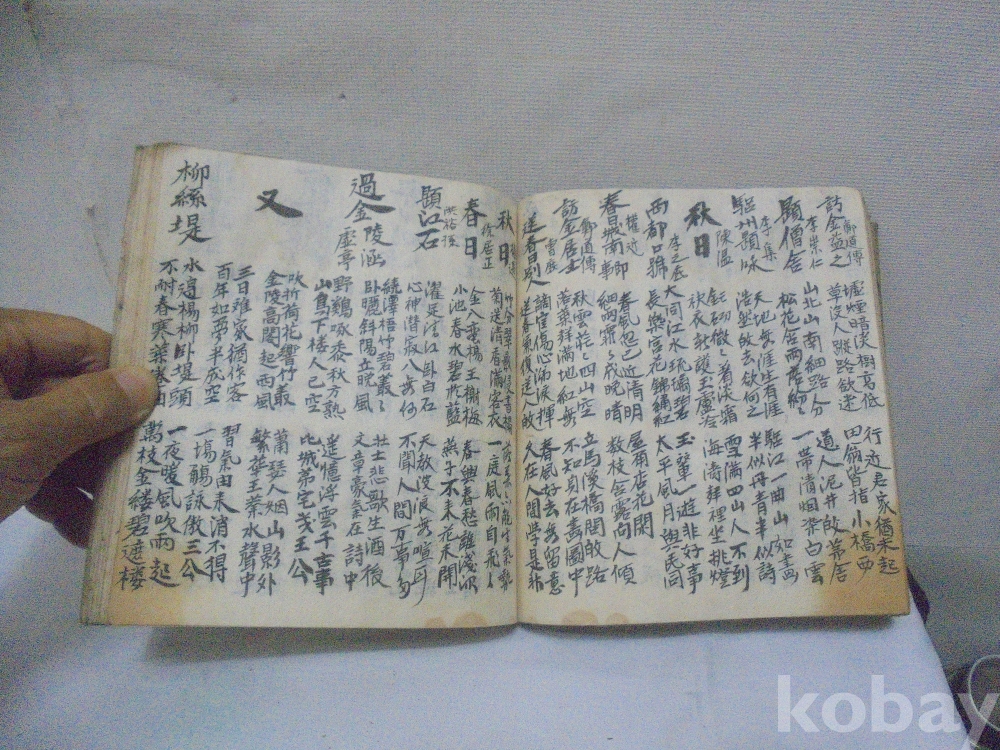 訪金益之 鄭道傳
墟煙暗淡樹高低 行近君家猶未起
草沒人蹤路欲迷 田翁背指小橋西
題僧舍 李崇仁
山北山南細路分 道人汲井歸茅舍
松花含雨落繽 一帶清烟染白雲
驪州題詠 李集
天地無涯生有涯 驪江一曲山如畵
浩然歸去欲何之 半似丹青半似詩
秋日 陳溫
微微著淡霜 雪滿四山人不到
秋衣新護玉膚 海濤聲裡坐挑燈
西都口號 李之氐
大同江水琉璃碧 玉輦一遊非好事
長樂宮花錦繡紅 太平風月與民同
春日城南即事 權近
春風忽已近清明 屋角杏花開
細雨霏霏成晚晴 數枝含露向人傾
訪金居士 鄭道傳
秋雲茫茫四山空 立馬溪橋問歸路
落葉無聲滿地紅 不知身在畵圖中
送春日別人
謫宦傷心涕淚揮 春風好去無留意
送春兼復送人歸 久在人間學是非
秋日
竹分翠影侵書榻
菊送清香滿客衣 一庭風雨自飛飛
春日 徐居正
金入垂楊玉謝梅 春興春愁誰淺深
小池春水碧於藍 燕子不來花未開
題江石 洪裕孫
濯足清江卧白石 天敎沒浪無喧耳
心神潛寂入無何 不聞人間萬事多
過金陵涵虛亭
繞澤梧竹碧叢叢 壯士悲歌生酒後
卧曬斜陽立晚風 文章豪氣在詩中
野鷄啄黍秋方熟 遙憶浮雲千古事
山鳥下楼人已空 比城弟宅茂王公
又
吹折荷花響竹叢 蕭瑟人烟山影外
金陵高閣起西風 繁華王業水聲中
三日難家猶作客 習氣由来消不得
百年如夢半成空 一塲觴詠傲三公
柳絲堤
水邊楊柳卧堤頭 一夜暖風吹雨起
不耐春寒葉塞由 萬枝金縷碧遮樓
kobay